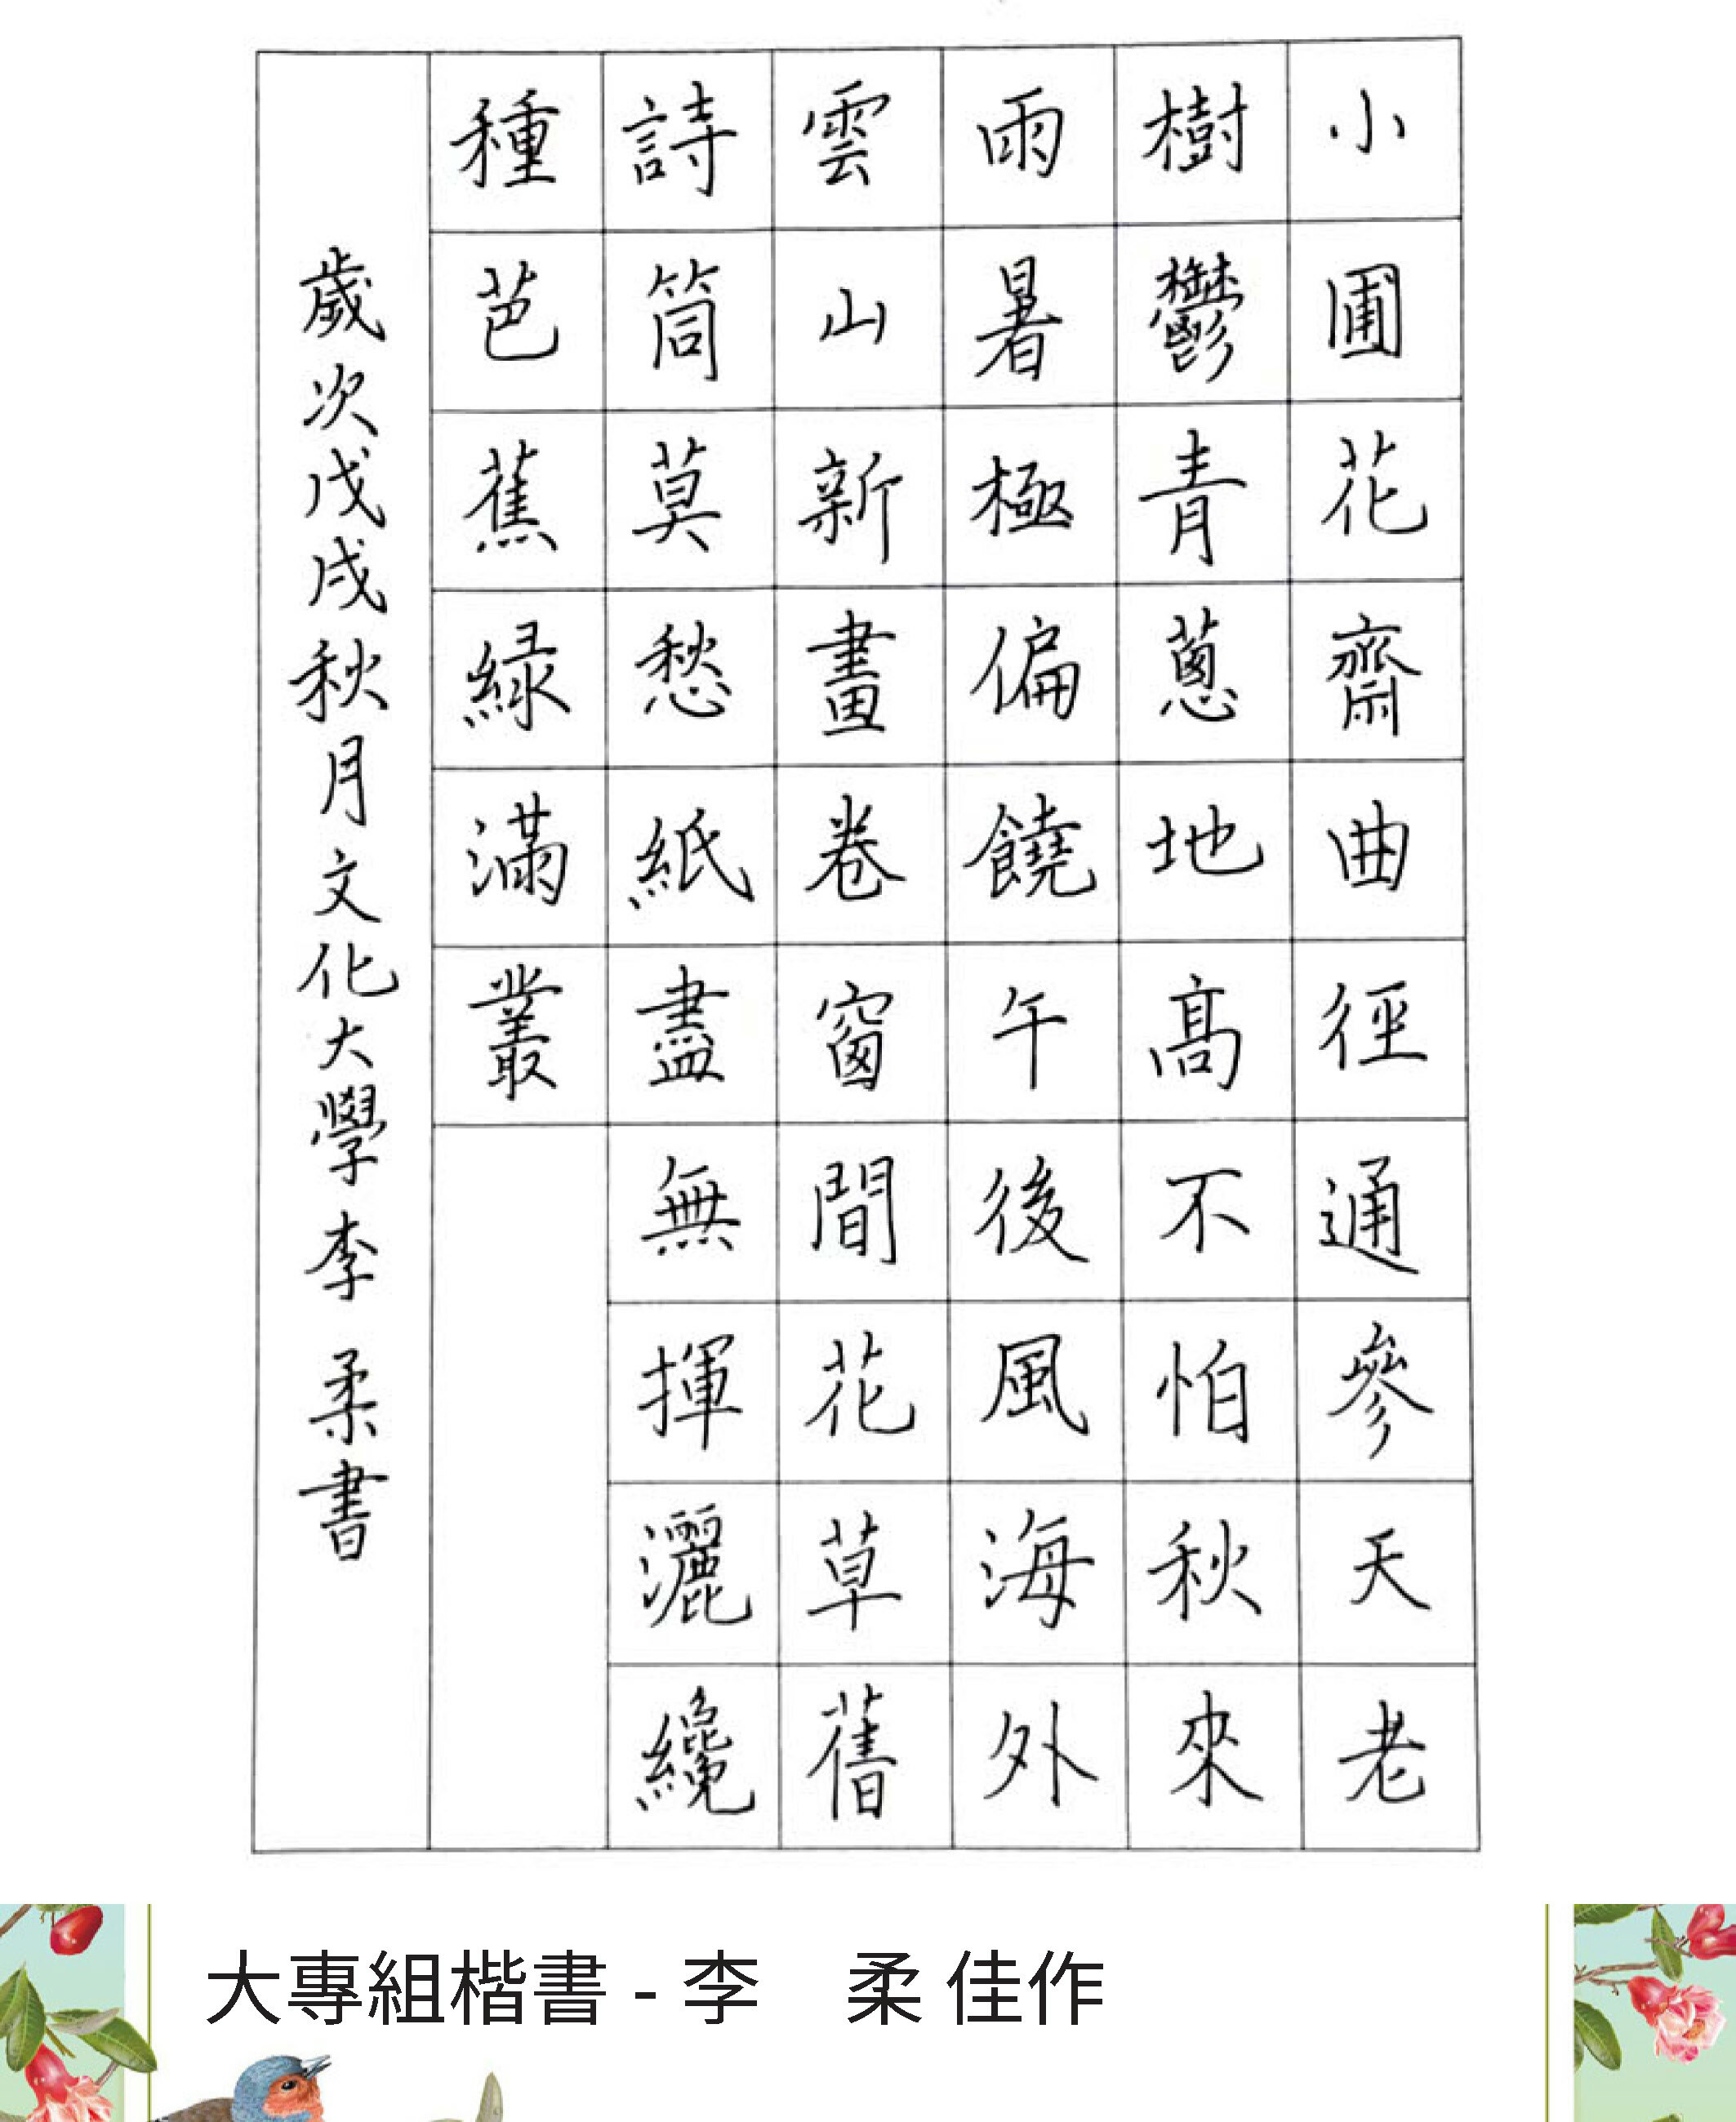 小圃花齋曲徑通參天老
樹鬱青蔥地高不怕秋來
雨暑極偏饒午後風海外
雲山新畫卷窗間花草舊
詩筒莫愁紙盡無揮灑纔
種芭蕉綠滿叢
歲次戊戌秋月文化大學李柔書
大專組楷書 - 李　柔 佳作